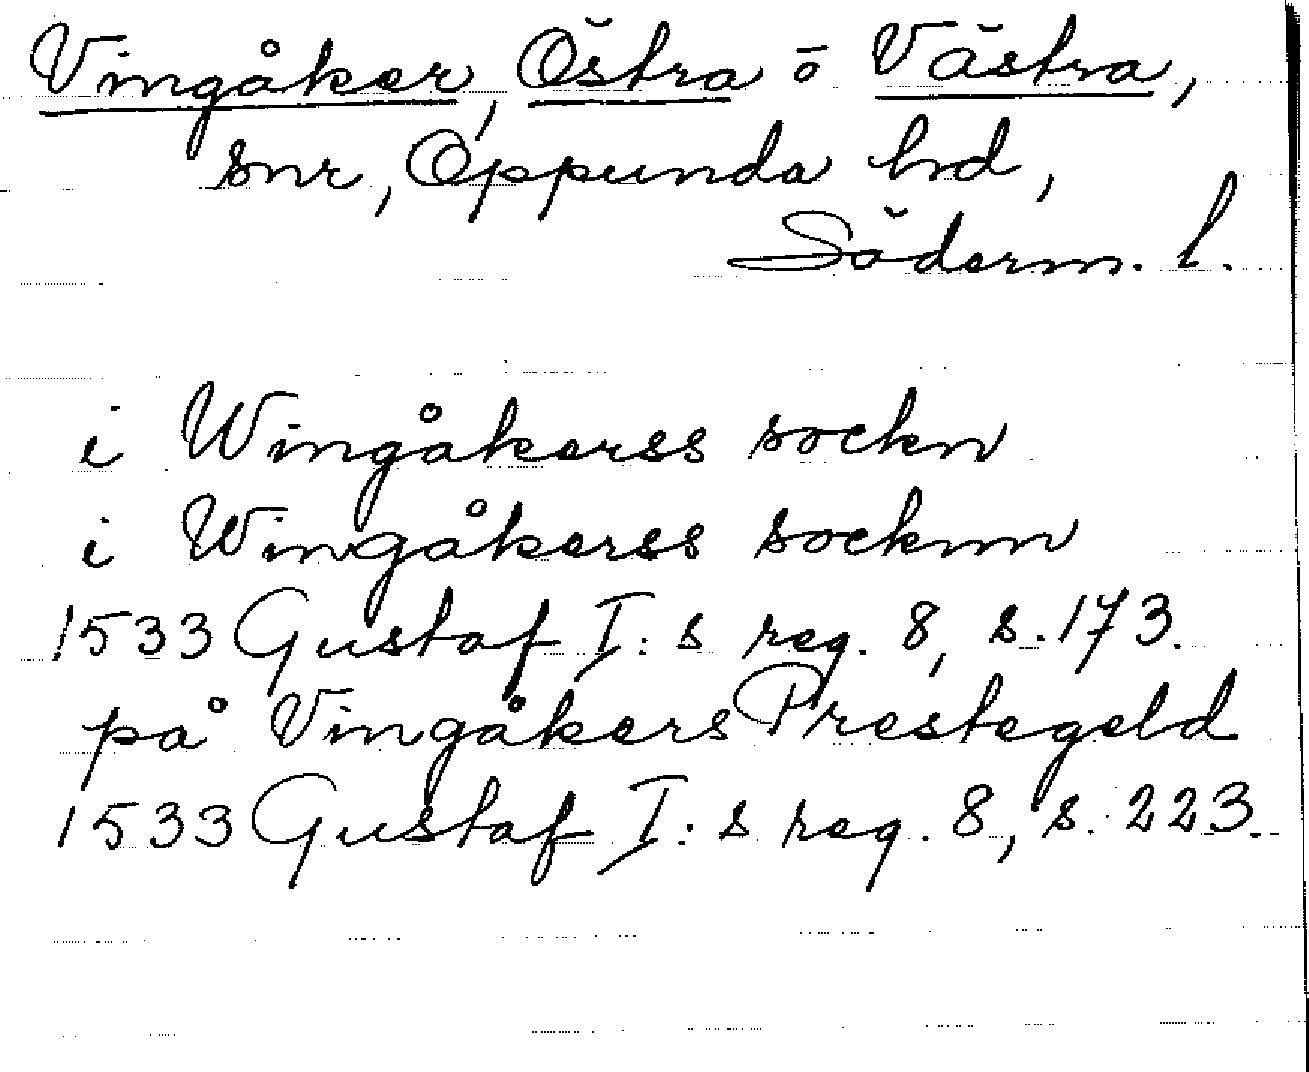 Vingåker, Östra o Västra,
snr, Oppunda hd,
Söderm. l.
i Wingåkerss sockn
i Wingåkerss socknn
1533 Gustaf I:s reg. 8, s. 173.
på Vingåkers Prestegeld
1533 Gustaf I:s reg. 8, s. 223.